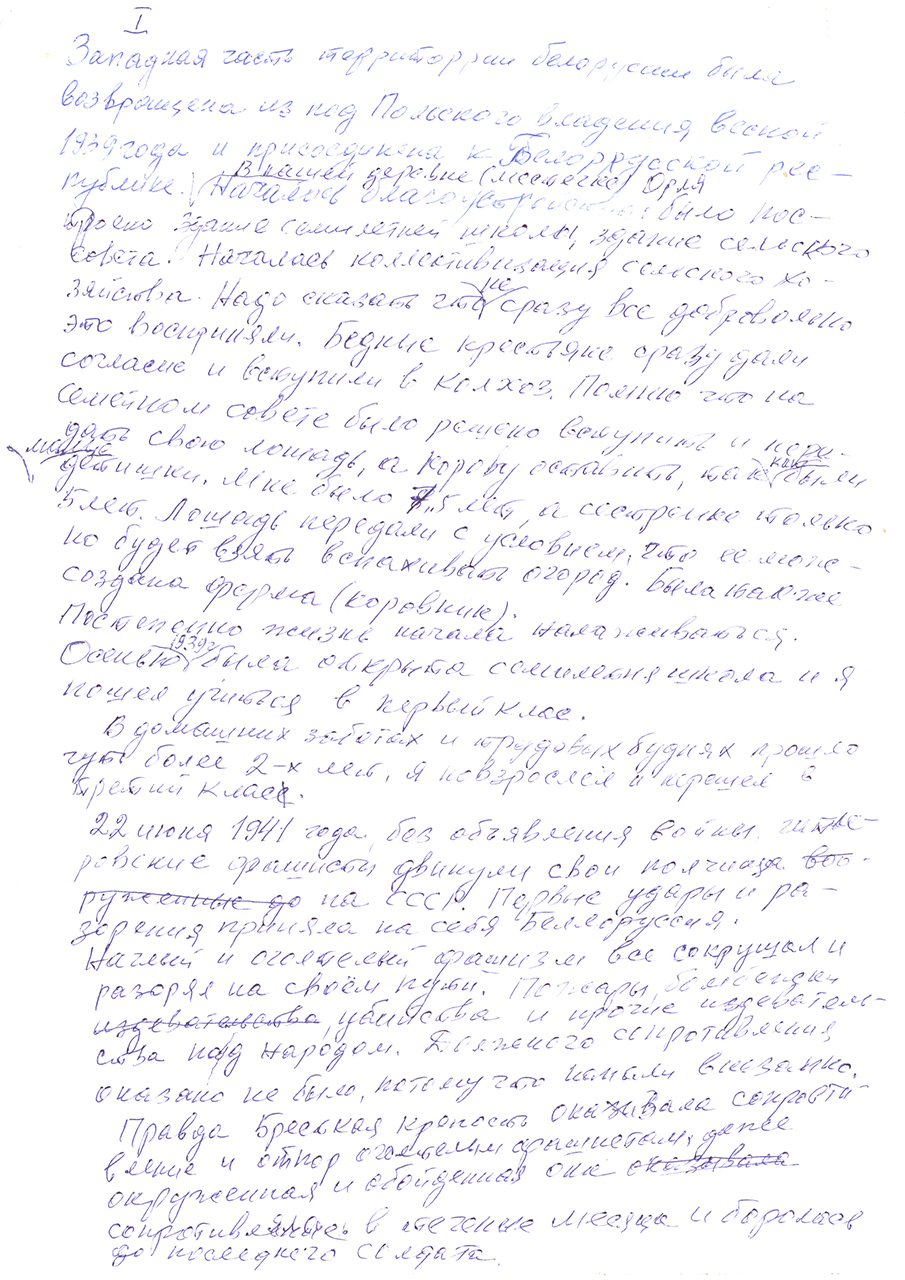 I
Западная часть территоррии белорусии была
возвращена из под Польского владения весной
1939 года и присоединена к Белоррусской рес-
В нашей деревне (местечко) Орля
публике. Началось благоустройство: было пос-
троено здание семилетней школы, здание сельского
совета. Началась коллективизация сельского хо-
зяйства. Надо сказать что не сразу все добровольно
это восприняли. Бедные крестьяне сразу дали
согласие и вступили в колхоз. Помню что на
семейном совете было решено вступить и пере-
дать свою лошадь, а корову оставить, так как были
детишки. Мне было 7,5 лет, а сестренке только
5 лет. Лошадь передали с условием, что ее мож-
но будет взять вспахивать огород. Была также
создана ферма (коровник).
Постепенно жизнь начала налаживаться.
Осенью 1939г была открыта семилетняя школа и я
пошел учиться в первый клас.
В домашних заботах и трудовых буднях прошло
чуть более 2-х лет, я повзрослел и перешел в
третий класс.
22 июня 1941 года, без объявления войны гитле-
ровские фрашисты двинули свои полчища воо-
руженные до на СССР. Первые удары и ра-
зорения приняла на себя Беллоруссия.
Наглый и оголтелый фрашизм все сокрушал и
разорял на своём пути. Пожары, бомбежки
издевательства, убийства и прочие издеватель-
ства над народом. Должного сопротивления
оказано не было, потому что напали внезапно.
Правда Брестская крепость оказывала сопроти-
вление и отпор оголтелым фрашистам, даже
окруженная и обойденная она оказывала
сопротивлялась в течение месяца и боролась
до последнего солдата.